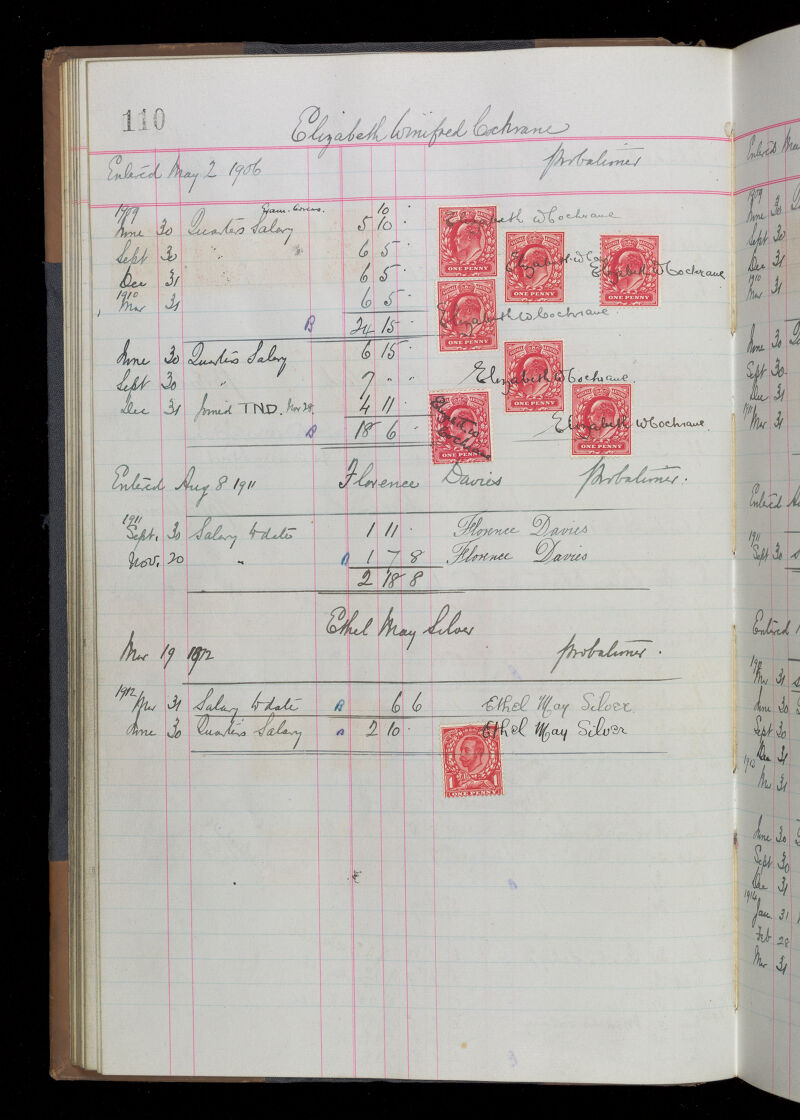 110
Elizabeth Winifred Cochrane
Entered May 2 1906 Probationer
1909 Exam. Govern. 10 .
June 30 Quarters Salary 5 10 . Elizabeth W Cochrane
Sept 30 " 6 5 . Elizabeth W Coc
Dec 31 6 5 . Elizabeth W Cochrane
1910
Mar 31 6 5 . Elizabeth W Cochrane
B 24 15 .
June 30 Quarters Salary 6 15 . Elizabeth W Cochrane.
Sept 30 " 7 " "
Dec 31 Joined TND. Nov 28. 4 11 . Elizabeth W Cochrane Elizabeth W Cochrane.
B 18 6 .
ONE PENNY
ONE PENNY
ONE PENNY
ONE PENNY
ONE PENNY
ONE PENNY
ONE PENNY
Entered Aug 8 1911 Florence Davies Probationer.
1911
Sept. 30 Salary to date 1 11 . Florence Davies
Nov. 20 " B 1 7 8 Florence Davies
2 18 8
Ethel May Silver
Mar 19 1912 Probationer.
1912
Mar 31 Salary to date B 6 6 Ethel May Silver
June 30 Quarters Salary B 2 10 . Ethel May Silver
1 1
ONE PENNY
Entered
1909
June 30
Sept 30
Dec 31
1910
Mar 31
June 30
Sept 30
Dec 31
1911
Mar 31
Entered
1911
Sept 30
Entered
Mar 31
June 30
Sept 30
Dec 31
1913
Mar 31
June 30
Sept 30
Dec 31
1914
Jan 31
Feb 28
Mar 31